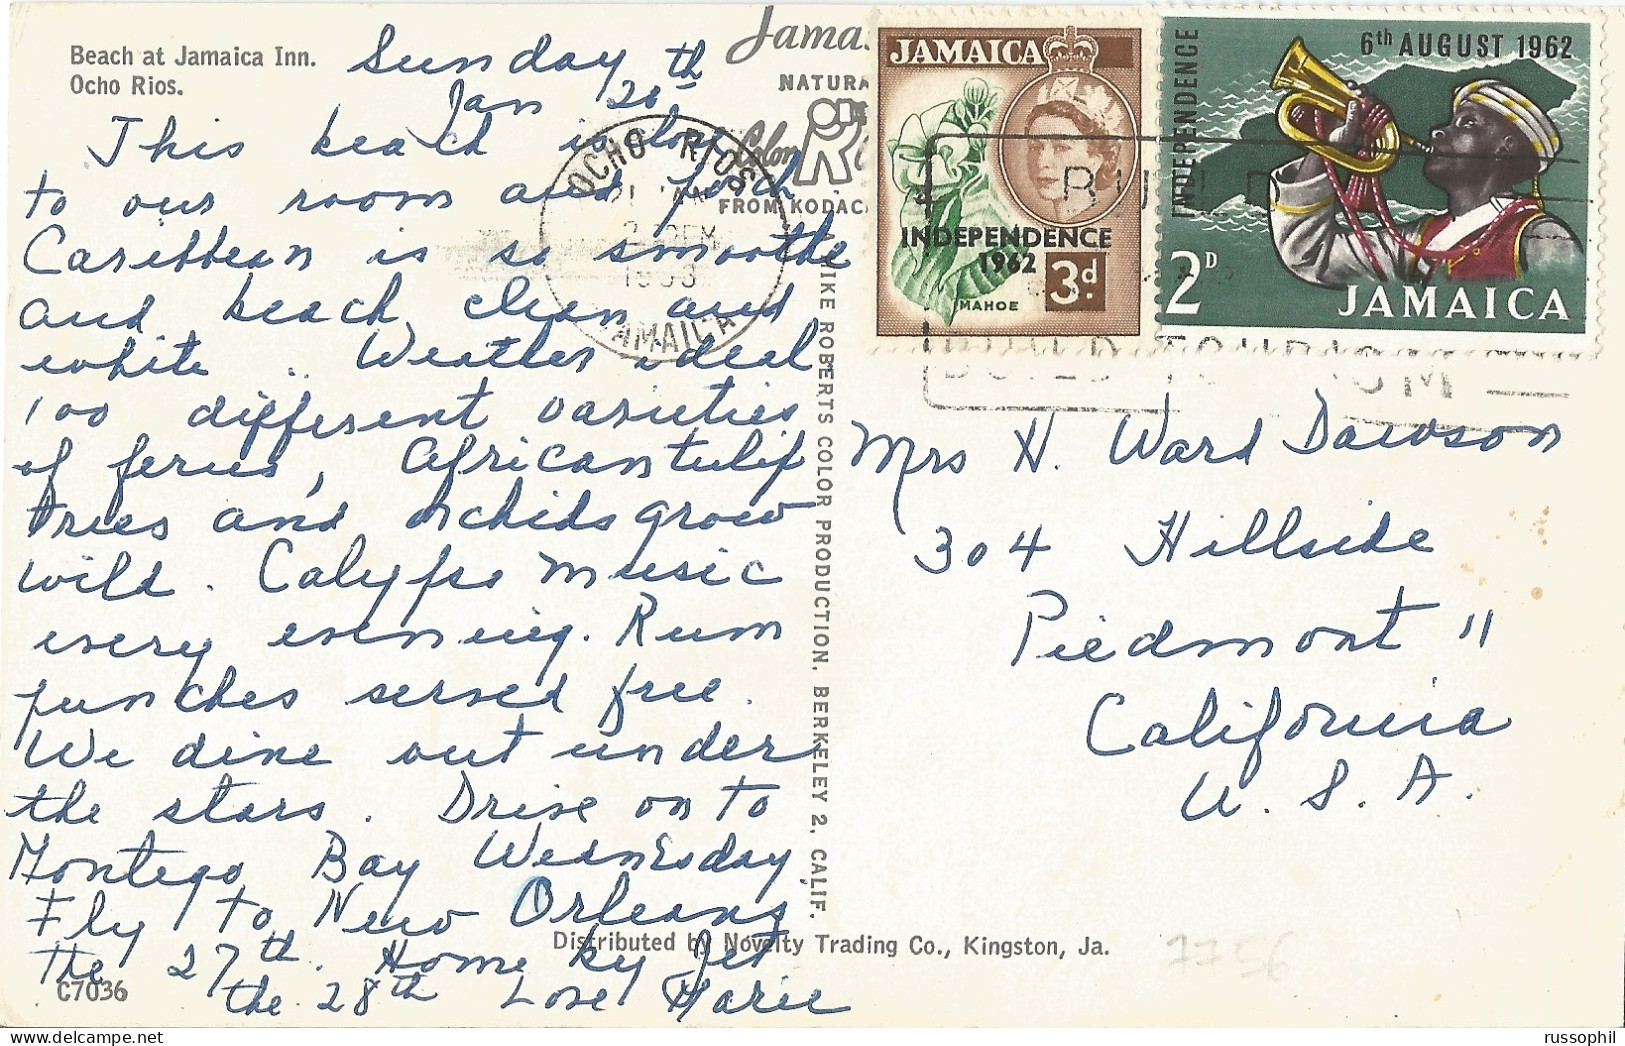 Beach at Jamaica Inn.
Ocho Rios.
Sunday
Jan 20th
This beach is close
to our room and porch
Caribbean is so smoothe
and beach clean and
white .. Weather ideal
100 different varieties
of ferns, African tulip
trees and orchids grow
wild. Calypso music
every evening. Rum
punches served free.
We dine out under
the stars. Drive on to
Montego Bay Wednesday.
Fly to New Orleans
the 27th. Home by Jet
the 28th Love Marie
C7036
NATURA
Colom
FROM KODAC
OCHO RIOS
JAMAICA
A MIKE ROBERTS COLOR PRODUCTION, BERKELEY 2, CALIF.
Distributed by Novelty Trading Co., Kingston, Ja.
JAMAICA
INDEPENDENCE
1962
3d.
MAHOE
INDEPENDENCE
6th AUGUST 1962
2D
JAMAICA
Mrs H. Ward Dawson
304 Hillside
Piedmont 11
California
U. S. A.
7756
russophil